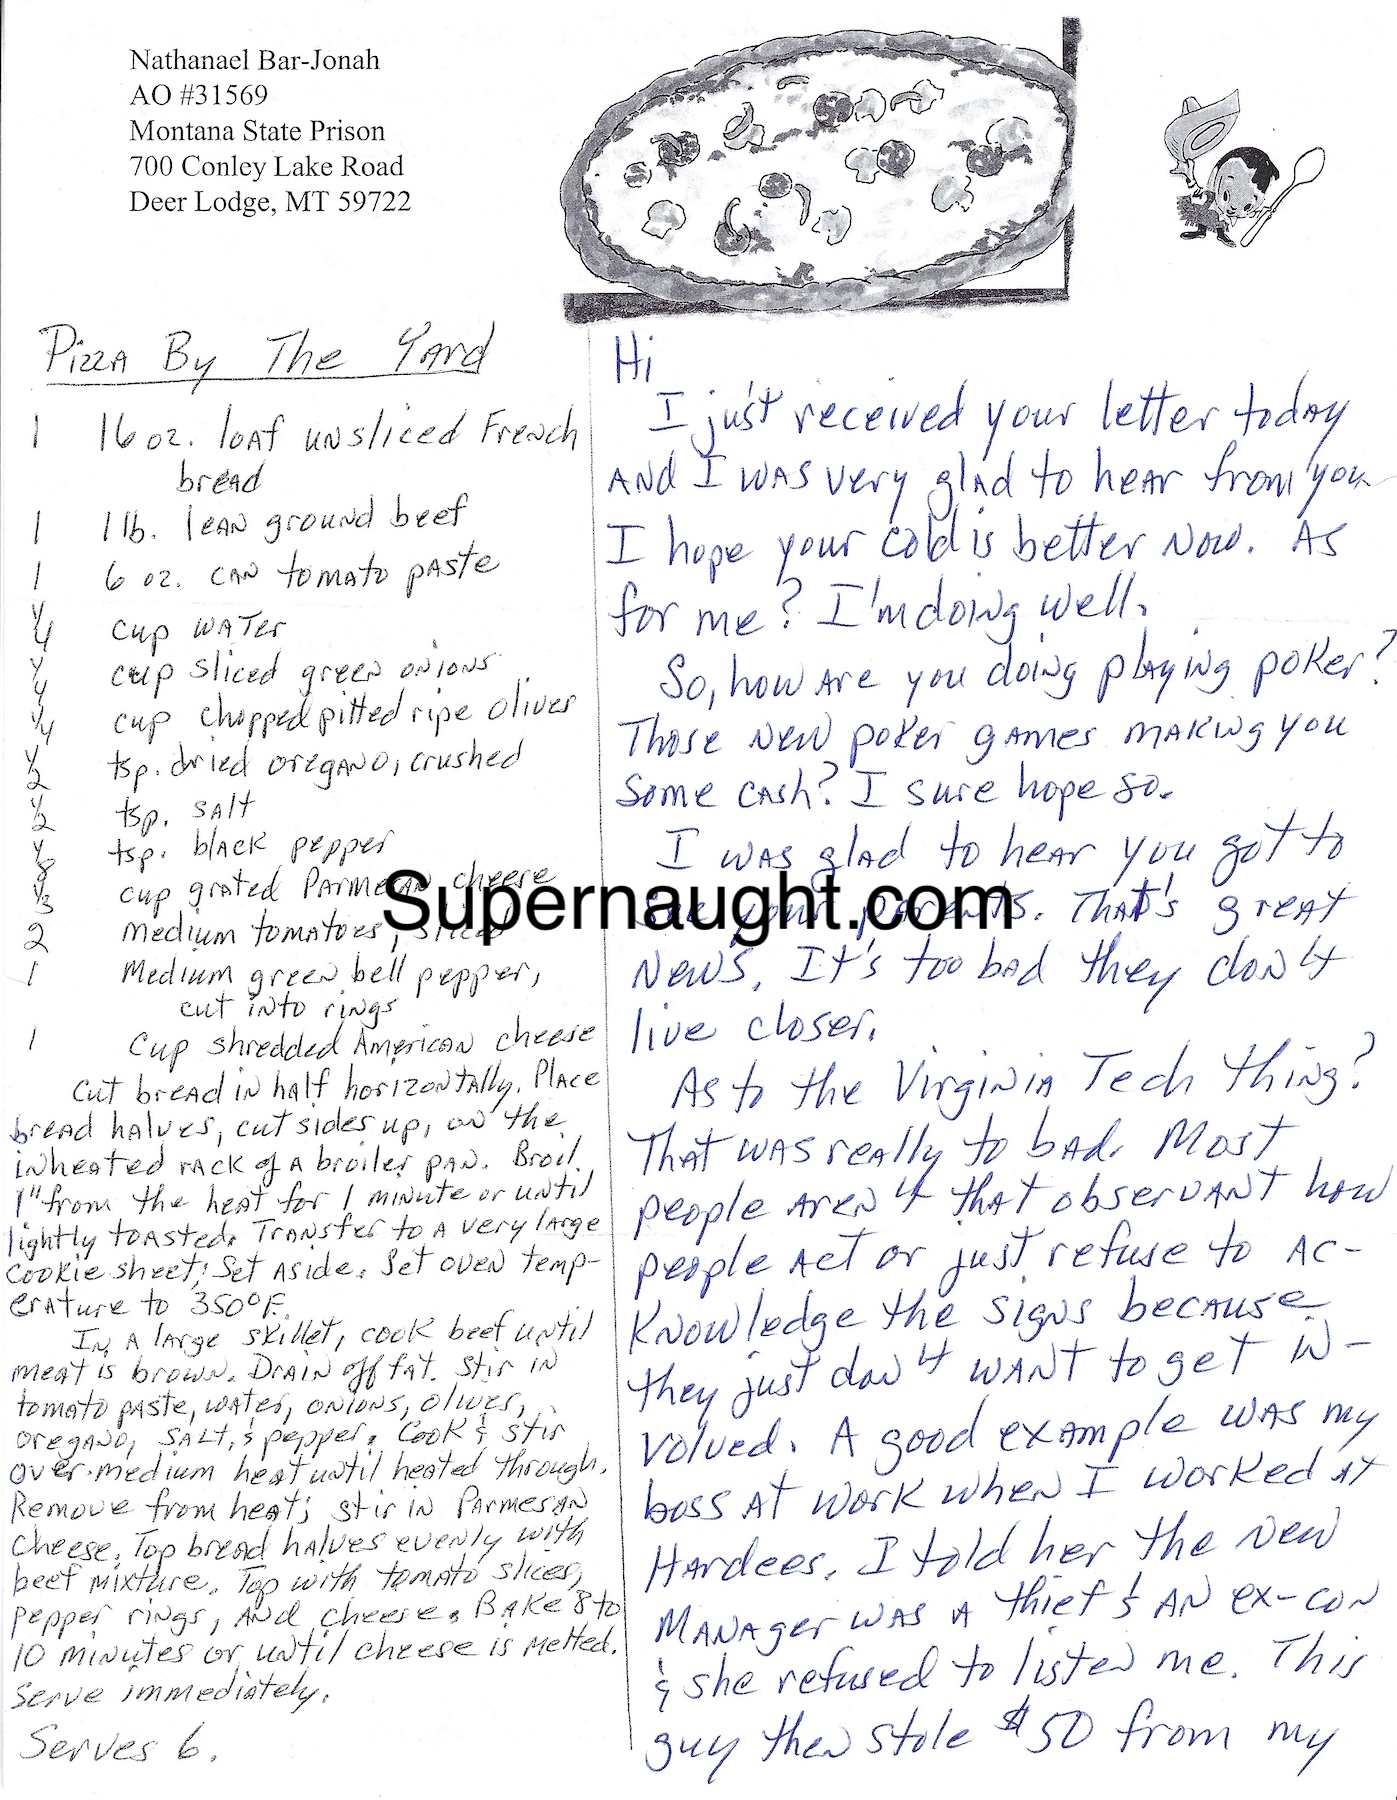 Nathanael Bar-Jonah
AO #31569
Montana State Prison
700 Conley Lake Road
Deer Lodge, MT 59722
Pizza By The Yard
1 16 oz. loaf unsliced French
bread
1 1 lb. lean ground beef
1 6 oz. can tomato paste
1/4 cup water
1/4 cup sliced green onions
1/4 cup chopped pitted ripe olives
1/2 tsp. dried oregano, crushed
1/2 tsp. salt
1/8 tsp. black pepper
1/3 cup grated Parmesan cheese
2 medium tomatoes, sliced
1 medium green bell pepper,
cut into rings
1 cup shredded American cheese
Cut bread in half horizontally. Place
bread halves, cut sides up, on the
inheated rack of a broiler pan. Broil
1" from the heat for 1 minute or until
lightly toasted. Transfer to a very large
cookie sheet; Set aside. Set oven temp-
erature to 350°F.
In a large skillet, cook beef until
meat is brown. Drain off fat. Stir in
tomato paste, water, onions, olives,
oregano, salt, & pepper. Cook & stir
over medium heat until heated through.
Remove from heat; stir in Parmesan
cheese. Top bread halves evenly with
beef mixture. Top with tomato slices,
pepper rings, and cheese. Bake 8 to
10 minutes or until cheese is melted.
Serve immediately.
Serves 6.
Hi
I just received your letter today
and I was very glad to hear from you
I hope your cold is better now. As
for me? I'm doing well.
So, how are you doing playing poker?
Those new poker games making you
some cash? I sure hope so.
I was glad to hear you got to
see your parents. That's great
news. It's too bad they don't
live closer.
As to the Virginia Tech thing?
That was really to bad. Most
people aren't that observant how
people act or just refuse to ac-
knowledge the signs because
they just don't want to get in-
volved. A good example was my
boss at work when I worked at
Hardees. I told her the new
manager was a thief & an ex-con
& she refused to listen me. This
guy then stole $50 from my
Supernaught.com